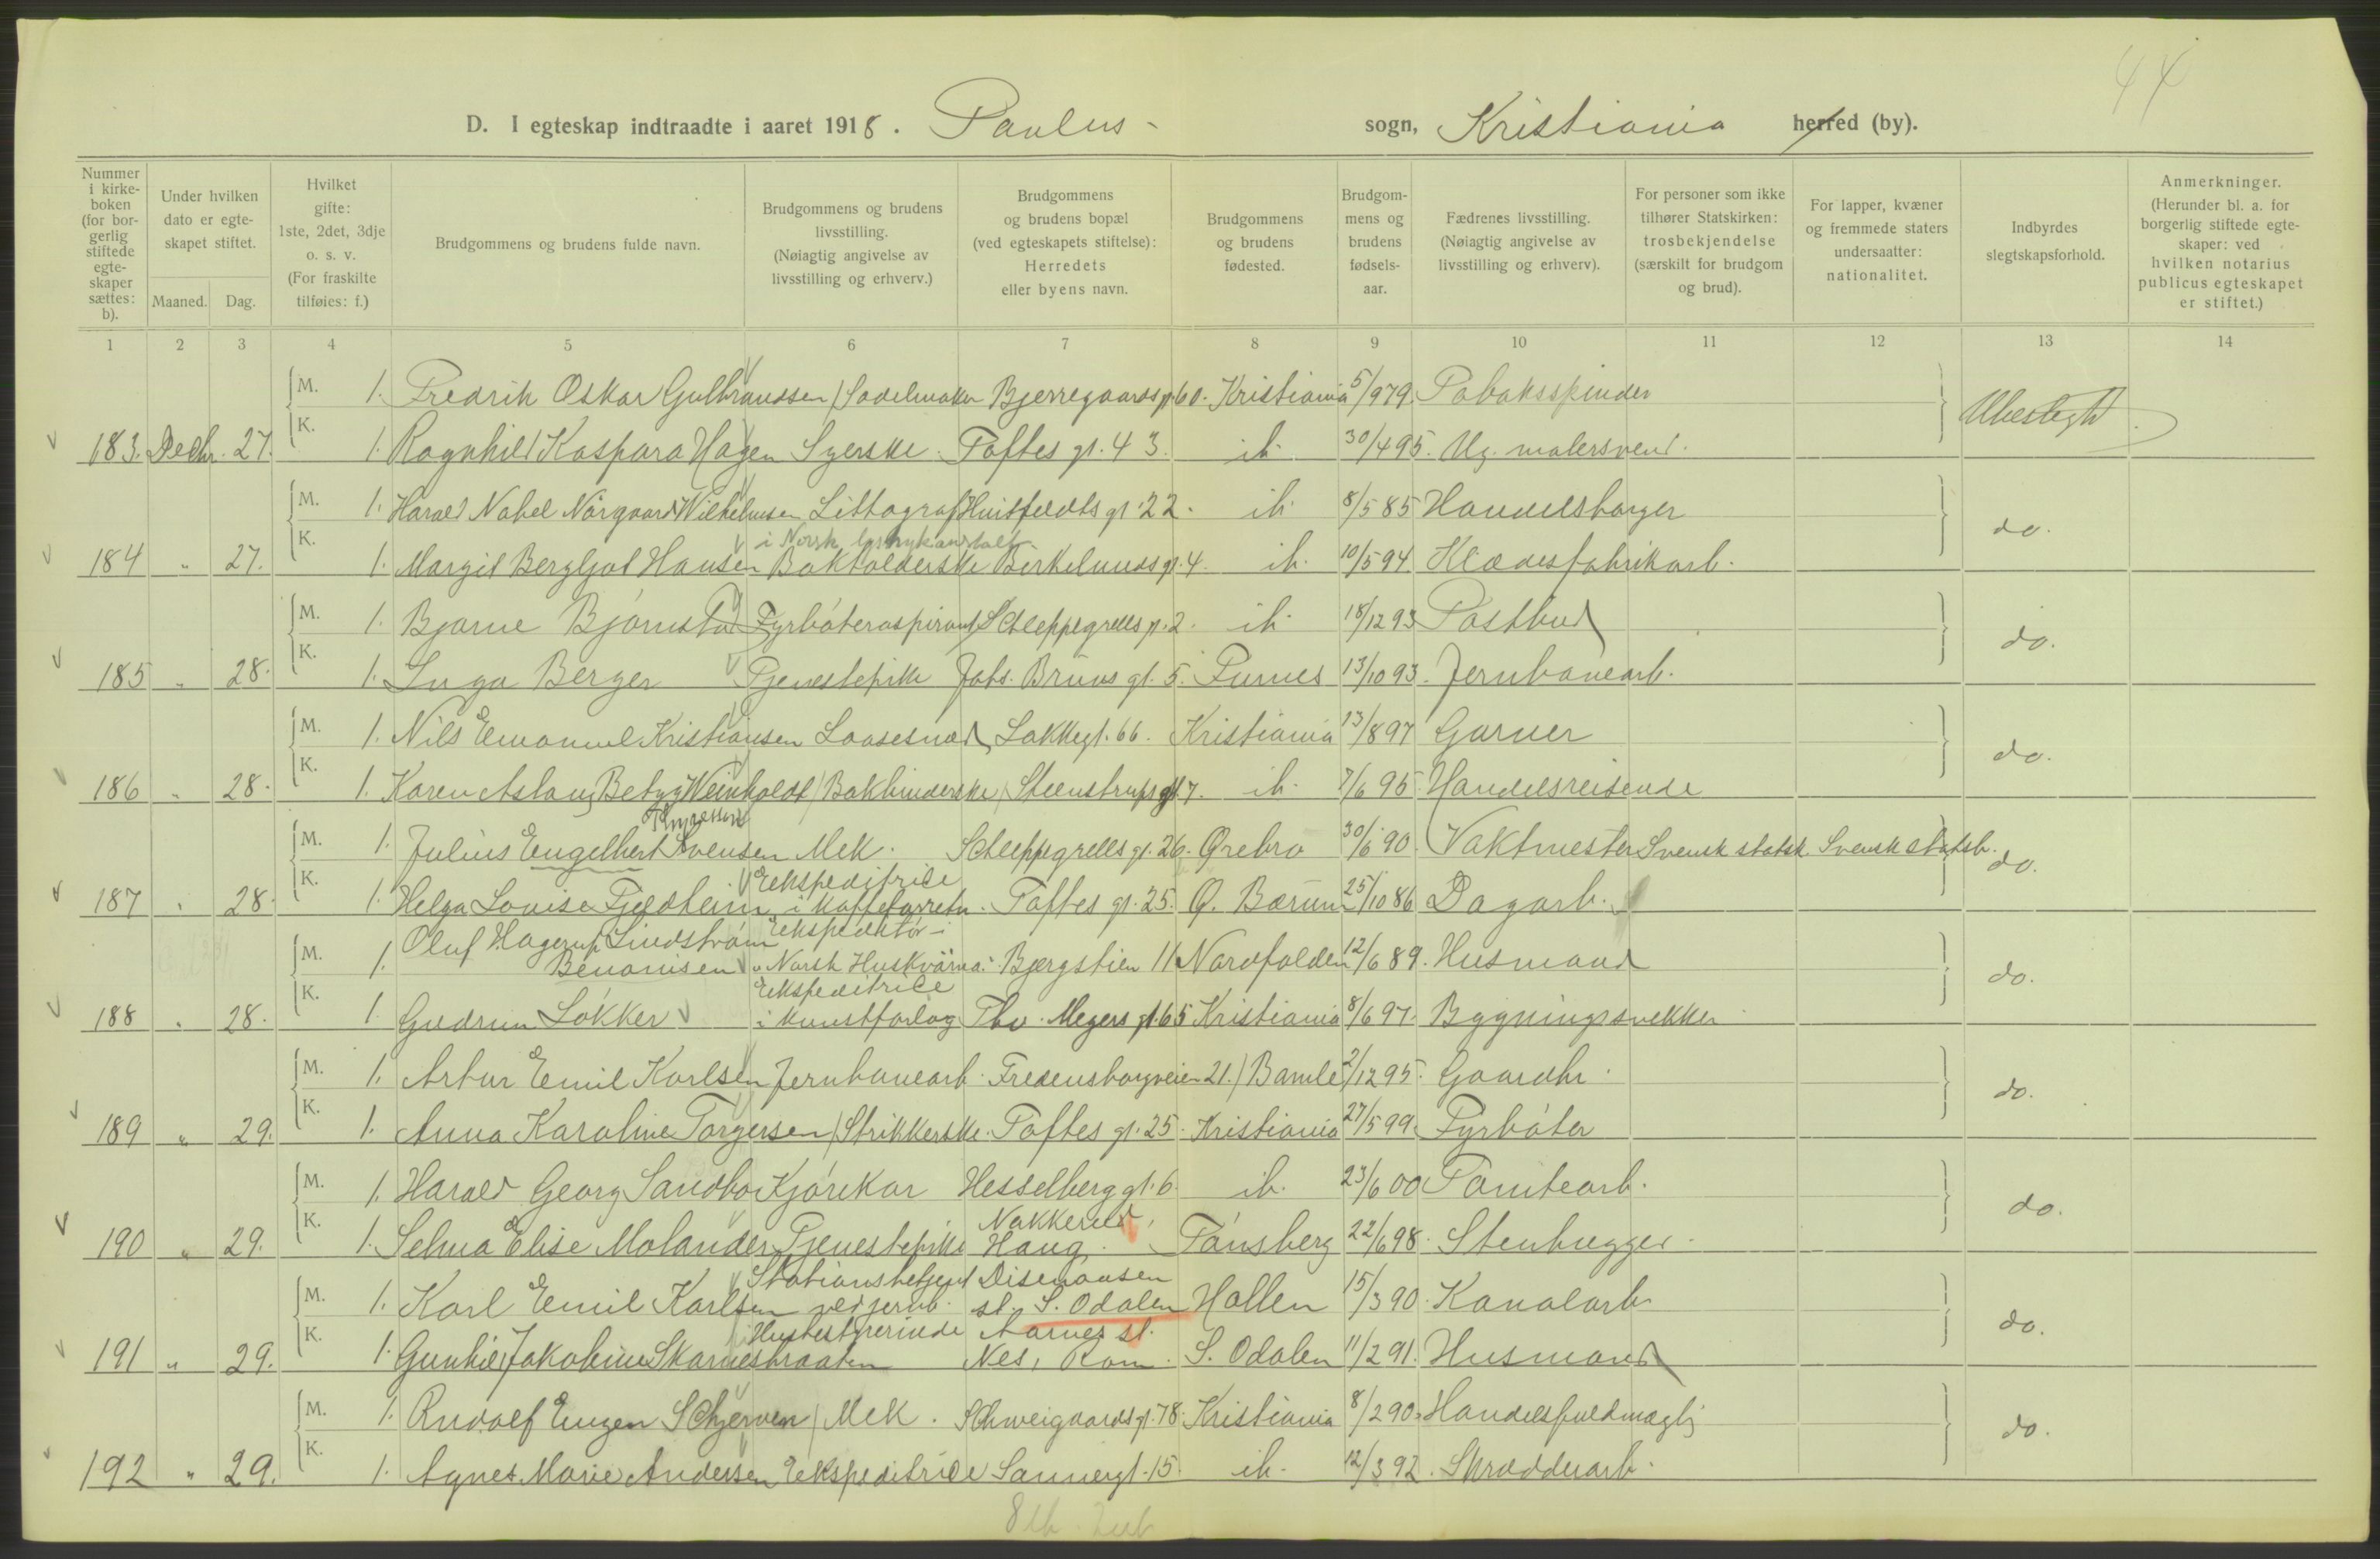 44
D. I egteskap indtraadte i aaret 1918. Paulus- sogn, Kristiania herred (by).
Nummer i kirkeboken (for borgerlig stiftede egteskaper sættes: b).
Under hvilken dato er egteskapet stiftet.
Maaned. Dag.
Hvilket gifte: 1ste, 2det, 3dje o. s. v. (For fraskilte tilføies: f.)
Brudgommens og brudens fulde navn.
Brudgommens og brudens livsstilling. (Nøiagtig angivelse av livsstilling og erhverv.)
Brudgommens og brudens bopæl (ved egteskapets stiftelse): Herredets eller byens navn.
Brudgommens og brudens fødested.
Brudgommens og brudens fødselsaar.
Fædrenes livsstilling. (Nøiagtig angivelse av livsstilling og erhverv).
For personer som ikke tilhører Statskirken: trosbekjendelse (særskilt for brudgom og brud).
For lapper, kvæner og fremmede staters undersaatter: nationalitet.
Indbyrdes slegtskapsforhold.
Anmerkninger. (Herunder bl. a. for borgerlig stiftede egteskaper: ved hvilken notarius publicus egteskapet er stiftet.)
1 2 3 4 5 6 7 8 9 10 11 12 13 14
M. 1. Fredrik Oskar Gulbrandsen Sadelmaker Bjerregaards gt. 60. Kristiania 5/9 79 Tobaksspinder Ubeslegtet
183. Decbr. 27. K. 1. Ragnhild Kaspara Hagen Syerske Toftes gt. 43. ib. 30/4 95. Ug. malersvend.
M. 1. Harald Nobel Nörgaard Wilhelmsen Littograf Huitfeldts gt. 22. ib. 8/5 85 Handelsborger do.
i Norsk lystrykanstalt
184 " 27. K. 1. Margit Bergljot Hansen Bokholderske Birkelunds gt. 4. ib. 10/5 94 Klædesfabrikarb.
M. 1. Bjarne Björnstad Fyrböteraspirant Schleppegrells gt. 2. ib. 18/12 93 Postbud do.
185 " 28. K. 1. Inga Berger Tjenestepike Jobs. Bruns gt. 5. Furnes 13/10 93. Jernbanearb.
M. 1. Nils Emanuel Kristiansen Laasesmed Lakkegt. 66. Kristiania 13/8 97 Garver do.
186 " 28. K. 1. Karen Aslaug Betzy Weinholdt Bokbinderske Steenstrups gt. 7. ib. 7/6 95 Handelsreisende
M. 1. Julius Engelbert Svensen Mek. Schleppegrells gt. 26. Ørebro 30/6 90. Vaktmester Svensk statsk. Svensk statsb. do.
Ekspeditrice
187 " 28. K. 1. Helga Lovise Fjeldheim i kaffeforretn. Toftes gt. 25. Ø. Bærum 25/10 86 Dagarb.
Oluf Hagerup Lindström Ekspeditör i
M. 1. Benonisen "Norsk Huskvarna". Bjergstien 11 Nordfolden 12/6 89. Husmand do.
Ekspeditrice
188 " 28. K. 1. Gudrun Lökker i kunstforlag Thv. Meyers gt. 65 Kristiania 8/6 97. Bygningssnekker
M. 1. Artur Emil Karlsen Jernbanearb. Fredensborgveien 21. Bamle 2/12 95. Gaardbr. do.
189 " 29. K. 1. Anna Karoline Torgersen Strikkerske. Toftes gt. 25. Kristiania 27/5 99. Fyrböter
M. 1. Harald Georg Sandbo Kjörekar Hesselberg gt. 6. ib. 23/6 00 Tomtearb. do.
Nakkerud,
190 " 29. K. 1. Selma Elise Molander Tjenestepike Haug. Tönsberg 22/6 98. Stenhugger.
Stationsbetjent Disenaaen
M. 1. Karl Emil Karlsen ved jernb. st. S. Odalen Hollen 15/3 90. Kanalarb. do.
Husbestyrerinde Aarnes st.
191 " 29. K. 1. Gunhild Jakobine Skarnesbraaten Nes, Rom. S. Odalen 11/2 91. Husmand
M. 1. Rudolf Eugen Schjerven Mek. Schweigaards gt. 78. Kristiania 8/2 90. Handelsfuldmægtig do.
192 " 29. K. 1. Agnes Marie Andersen Ekspeditrice Sannergt. 15. ib. 12/3 92. Skrædderarb.